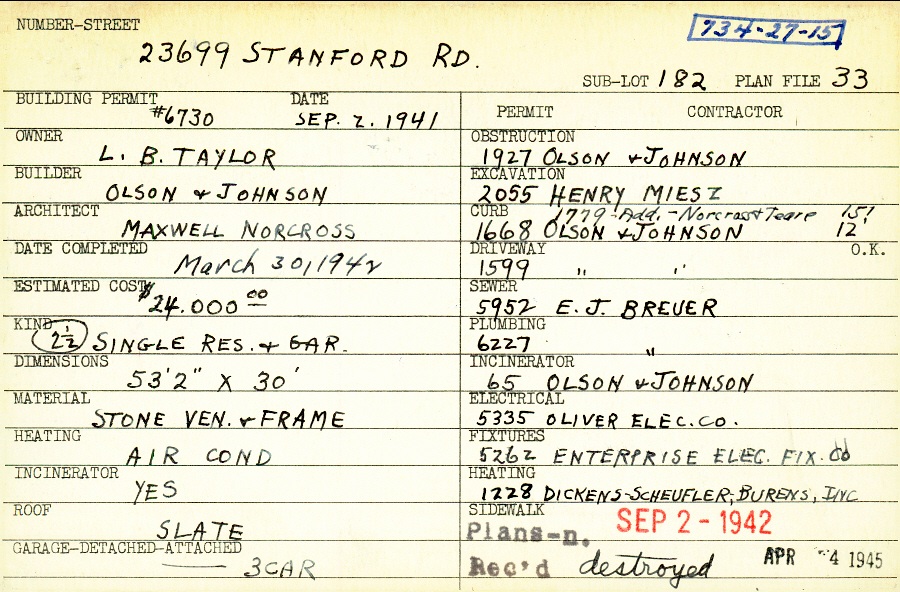 NUMBER-STREET
734-27-15
23699 STANFORD RD.
SUB-LOT 182 PLAN FILE 33
BUILDING PERMIT DATE
#6730 SEP. 2. 1941
OWNER
L. B. TAYLOR
BUILDER
OLSON & JOHNSON
ARCHITECT
MAXWELL NORCROSS
DATE COMPLETED
March 30, 1942
ESTIMATED COST
$24.000 00
KIND
2 1/2 SINGLE RES. & GAR.
DIMENSIONS
53'2" X 30'
MATERIAL
STONE VEN. & FRAME
HEATING
AIR COND
INCINERATOR
YES
ROOF
SLATE
GARAGE-DETACHED-ATTACHED
3 CAR
PERMIT CONTRACTOR
OBSTRUCTION
1927 OLSON & JOHNSON
EXCAVATION
2055 HENRY MIESZ
CURB 1779 - Add. - Norcross & Teare 15'
1668 OLSON & JOHNSON 12'
DRIVEWAY O.K.
1599 " "
SEWER
5952 E. J. BREUER
PLUMBING
6227 "
INCINERATOR
65 OLSON & JOHNSON
ELECTRICAL
5335 OLIVER ELEC. CO.
FIXTURES
5262 ENTERPRISE ELEC. FIX. CO
HEATING
1228 DICKENS-SCHEUFLER, BURENS, INC
SIDEWALK
SEP 2 - 1942
Plans-n.
Rec'd destroyed APR 4 1945